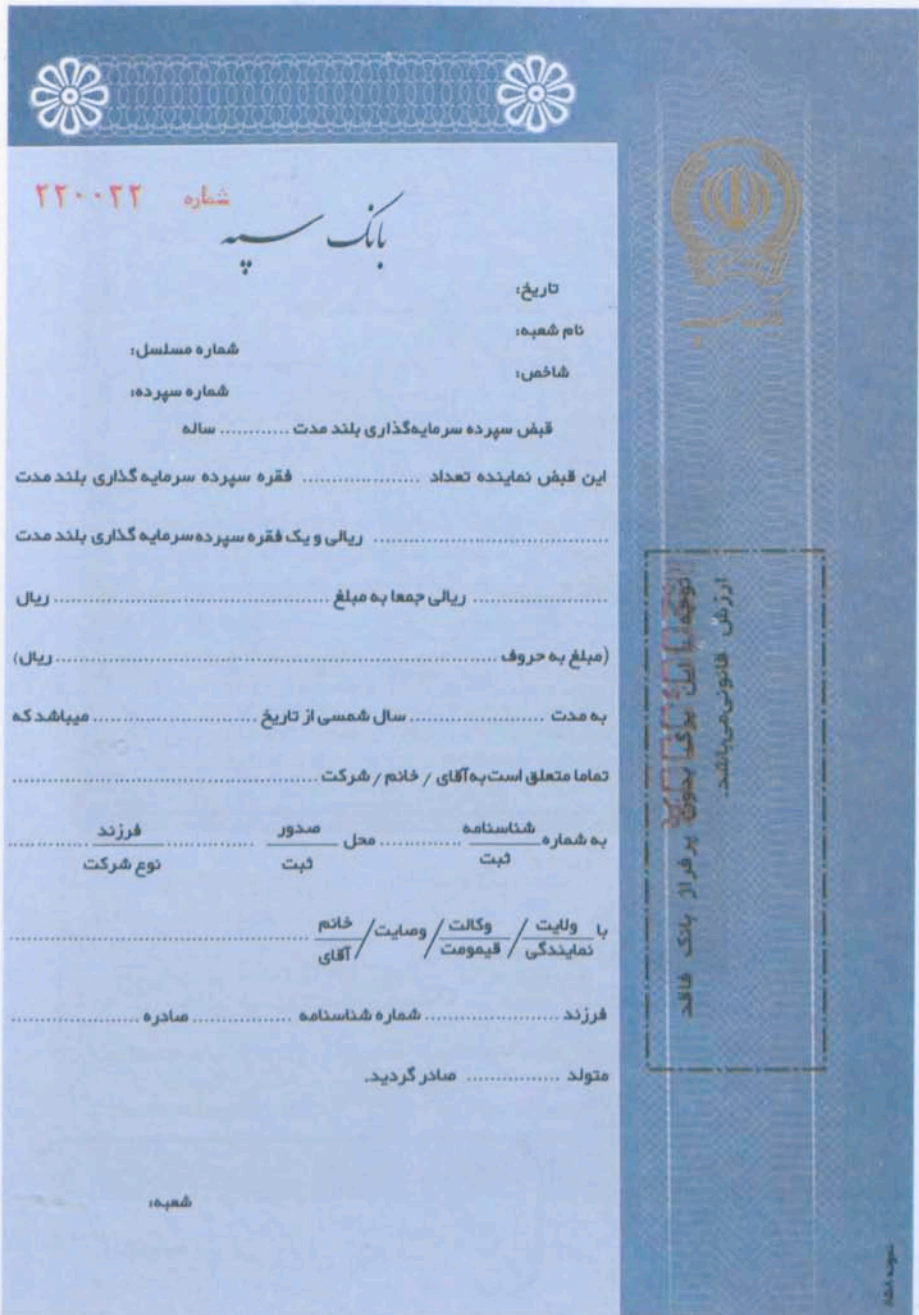 شماره ۲۲۰۰۲۲
بانک سپه
تاریخ:
نام شعبه:
شماره مسلسل:
شاخص:
شماره سپرده:
قبض سپرده سرمایه‌گذاری بلند مدت ............ ساله
این قبض نماینده تعداد .................. فقره سپرده سرمایه گذاری بلند مدت
.................................... ریالی و یک فقره سپرده سرمایه گذاری بلند مدت
..................... ریالی جمعا به مبلغ .......................................... ریال
(مبلغ به حروف .................................................................... ریال)
به مدت ..................... سال شمسی از تاریخ ..................... میباشد که
تماما متعلق است به آقای / خانم / شرکت ................................................
به شماره شناسنامه / ثبت ............ محل صدور / ثبت ............ فرزند / نوع شرکت ............
با ولایت / نمایندگی / وکالت / قیمومت / وصایت / خانم / آقای ................................................
فرزند ..................... شماره شناسنامه ............... صادره .....................
متولد ............... صادر گردید.
شعبه:
توجه: این برگ بدون پرفراژ بانک فاقد
ارزش قانونی می‌باشد.